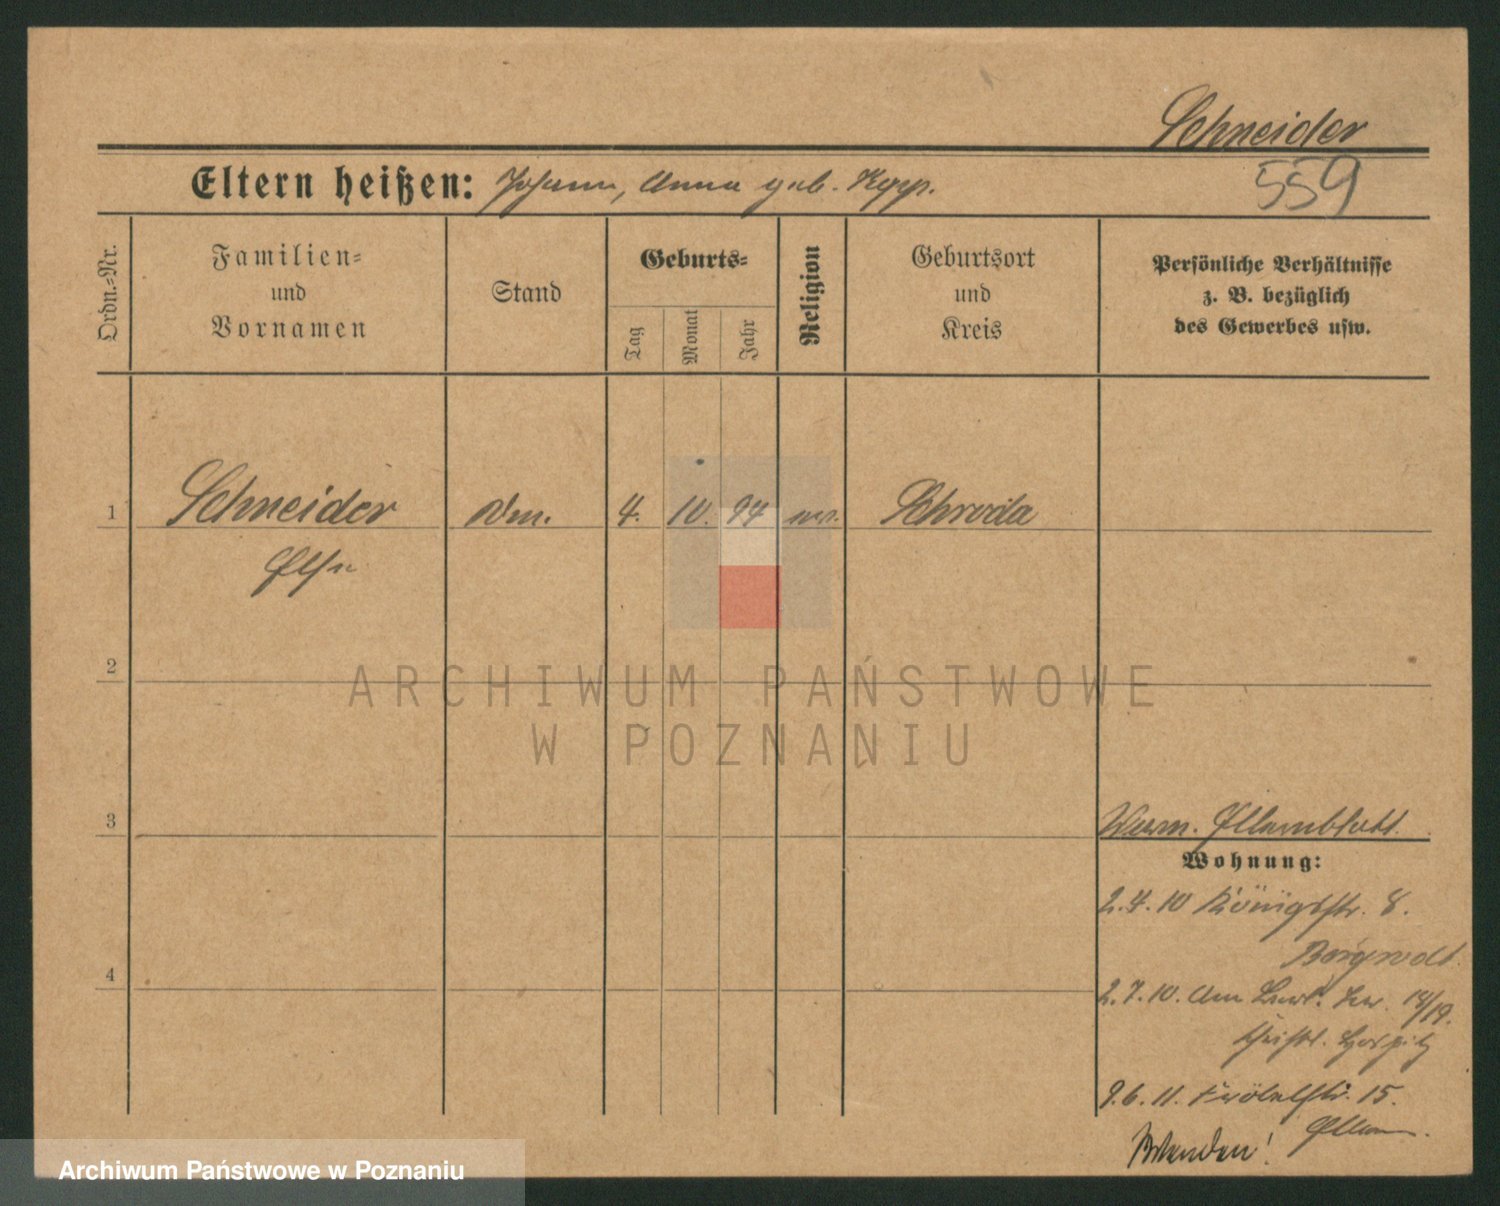 Schneider
559
Eltern heißen: Johann, Anna geb.
Ordn.-Nr.
Familien-
und
Vornamen
Stand
Geburts-
Tag
Monat
Jahr
Religion
Geburtsort
und
Kreis
Persönliche Verhältnisse
z. B. bezüglich
des Gewerbes usw.
1
Schneider
4. 10. 94
Schroda
Else
2
ARCHIWUM PAŃSTWOWE
W POZNANIU
3
Elternblatt
Wohnung:
2.4.10 Königstr. 8.
4
2.7.10. Am 18/19.
christl. Hospitz
9.6.11. Fröbelstr. 15.
Eltern.
Wenden!
Archiwum Państwowe w Poznaniu